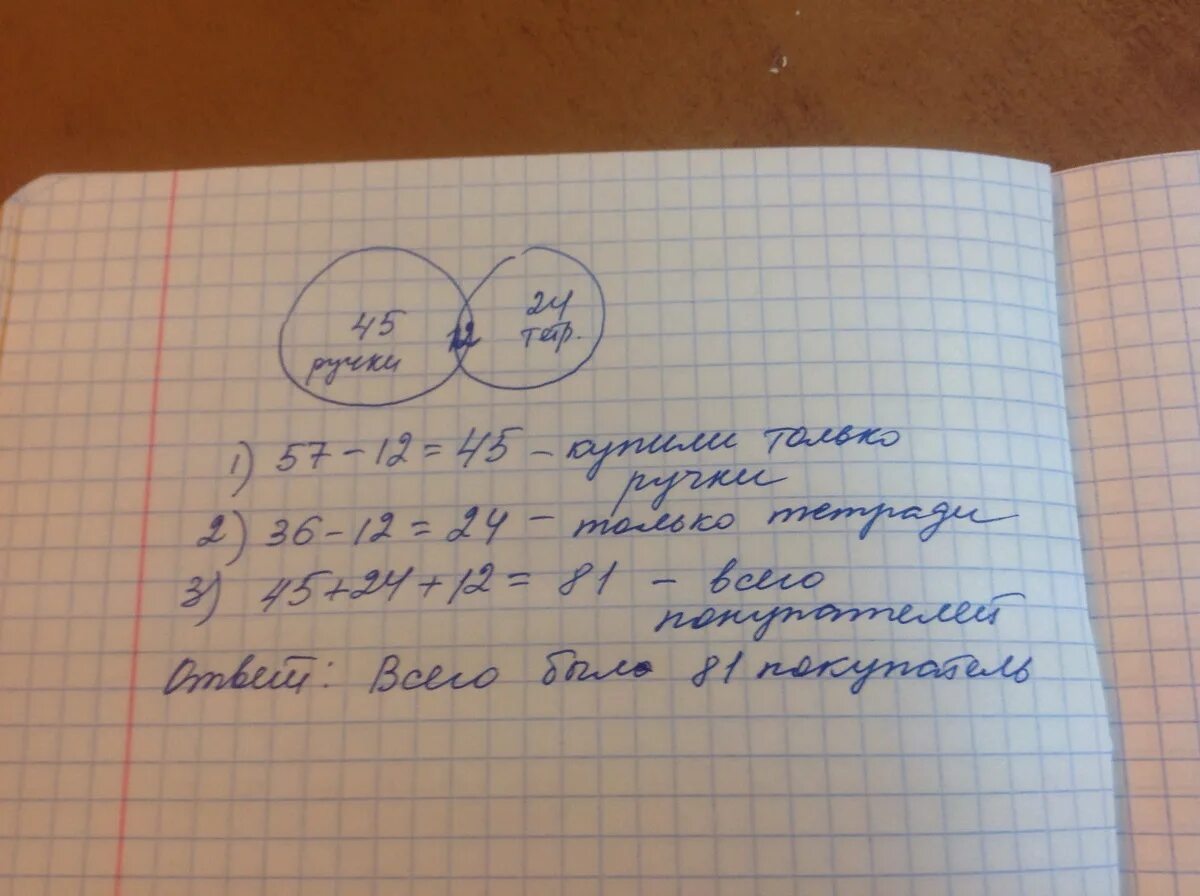 45
ручки
12
24
тетр.
1) 57 - 12 = 45 - купили только
ручки
2) 36 - 12 = 24 - только тетради
3) 45 + 24 + 12 = 81 - всего
покупателей
Ответ: Всего было 81 покупатель